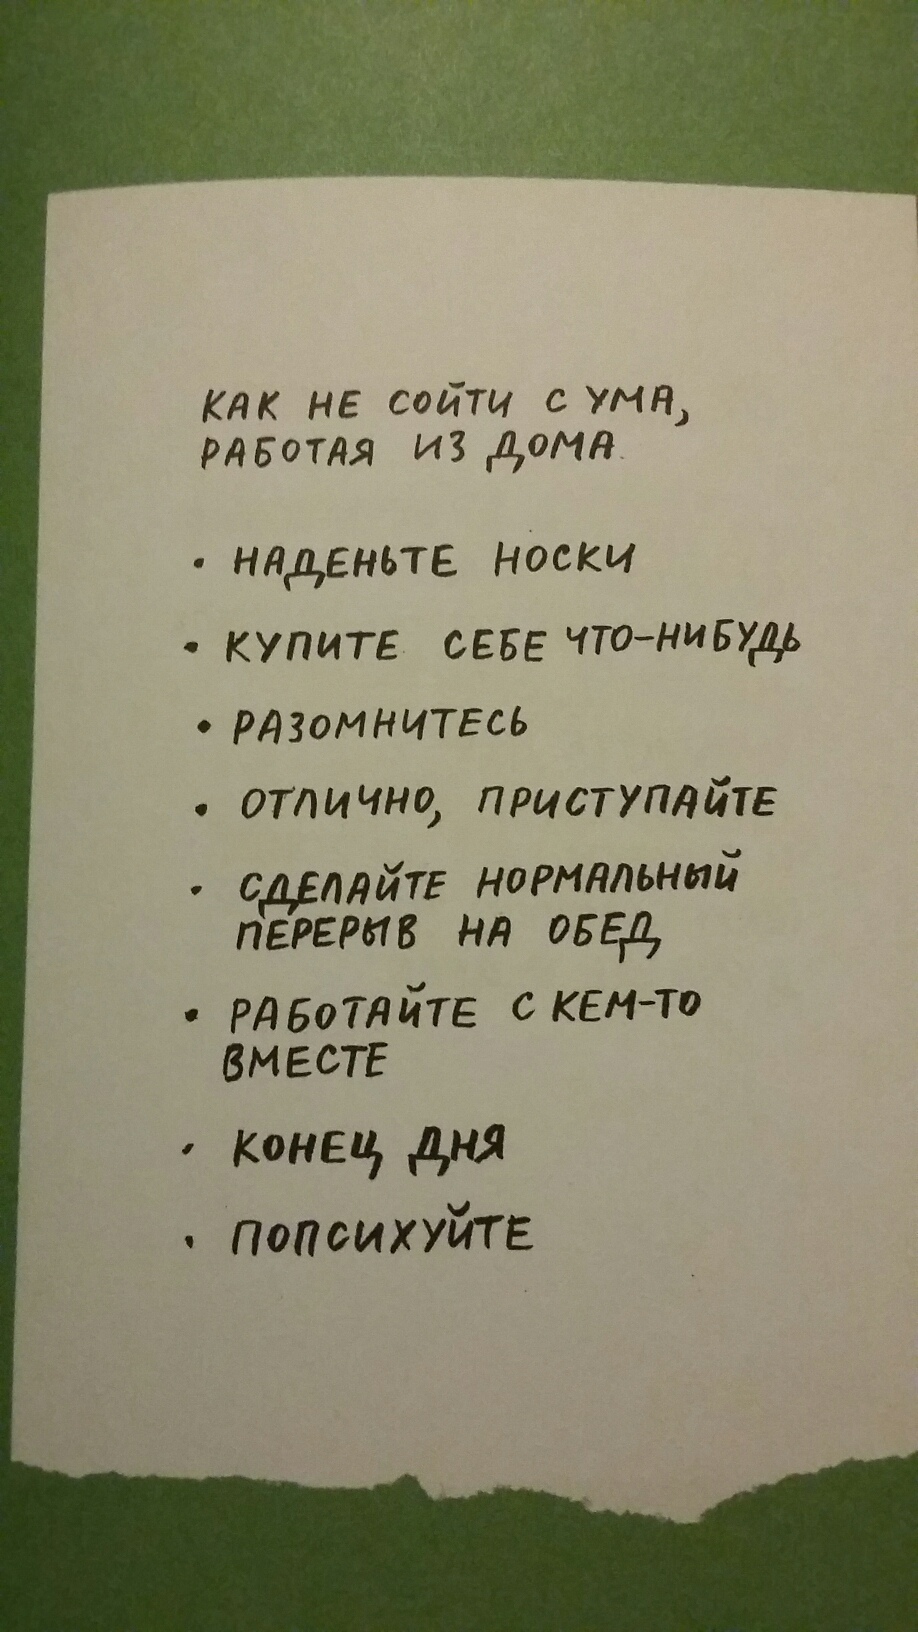 КАК НЕ СОЙТИ С УМА,
РАБОТАЯ ИЗ ДОМА.
• НАДЕНЬТЕ НОСКИ
• КУПИТЕ СЕБЕ ЧТО-НИБУДЬ
• РАЗОМНИТЕСЬ
• ОТЛИЧНО, ПРИСТУПАЙТЕ
• СДЕЛАЙТЕ НОРМАЛЬНЫЙ
ПЕРЕРЫВ НА ОБЕД
• РАБОТАЙТЕ С КЕМ-ТО
ВМЕСТЕ
• КОНЕЦ ДНЯ
• ПОПСИХУЙТЕ